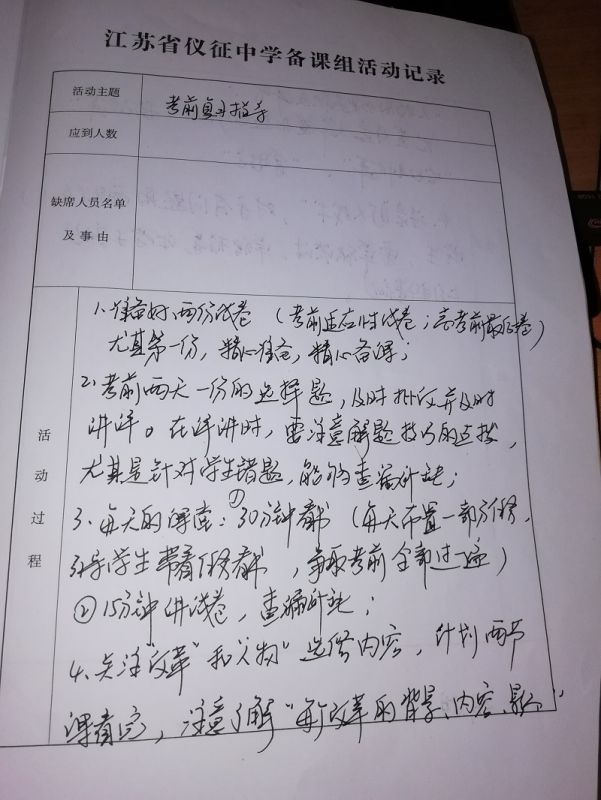 江苏省仪征中学备课组活动记录
活动主题
考前复习指导
应到人数
缺席人员名单
及事由
活动过程
1、准备好两份试卷（考前适应性试卷；高考前最后卷）
尤其第一份，精心准备，精心备课；
2、考前两天一份的选择题，及时批改并及时
讲评。在评讲时，要注意解题技巧的点拨，
尤其是针对学生错题，能够查漏补缺；
3、每天的课堂：①30分钟看书（每天布置一部分任务，
引导学生带着任务看书，争取考前全部过一遍）
②15分钟讲试卷，查漏补缺；
4、关注“改革”和“人物”选修内容，计划两节
课看完，注意了解“每次改革的背景、内容、影响”